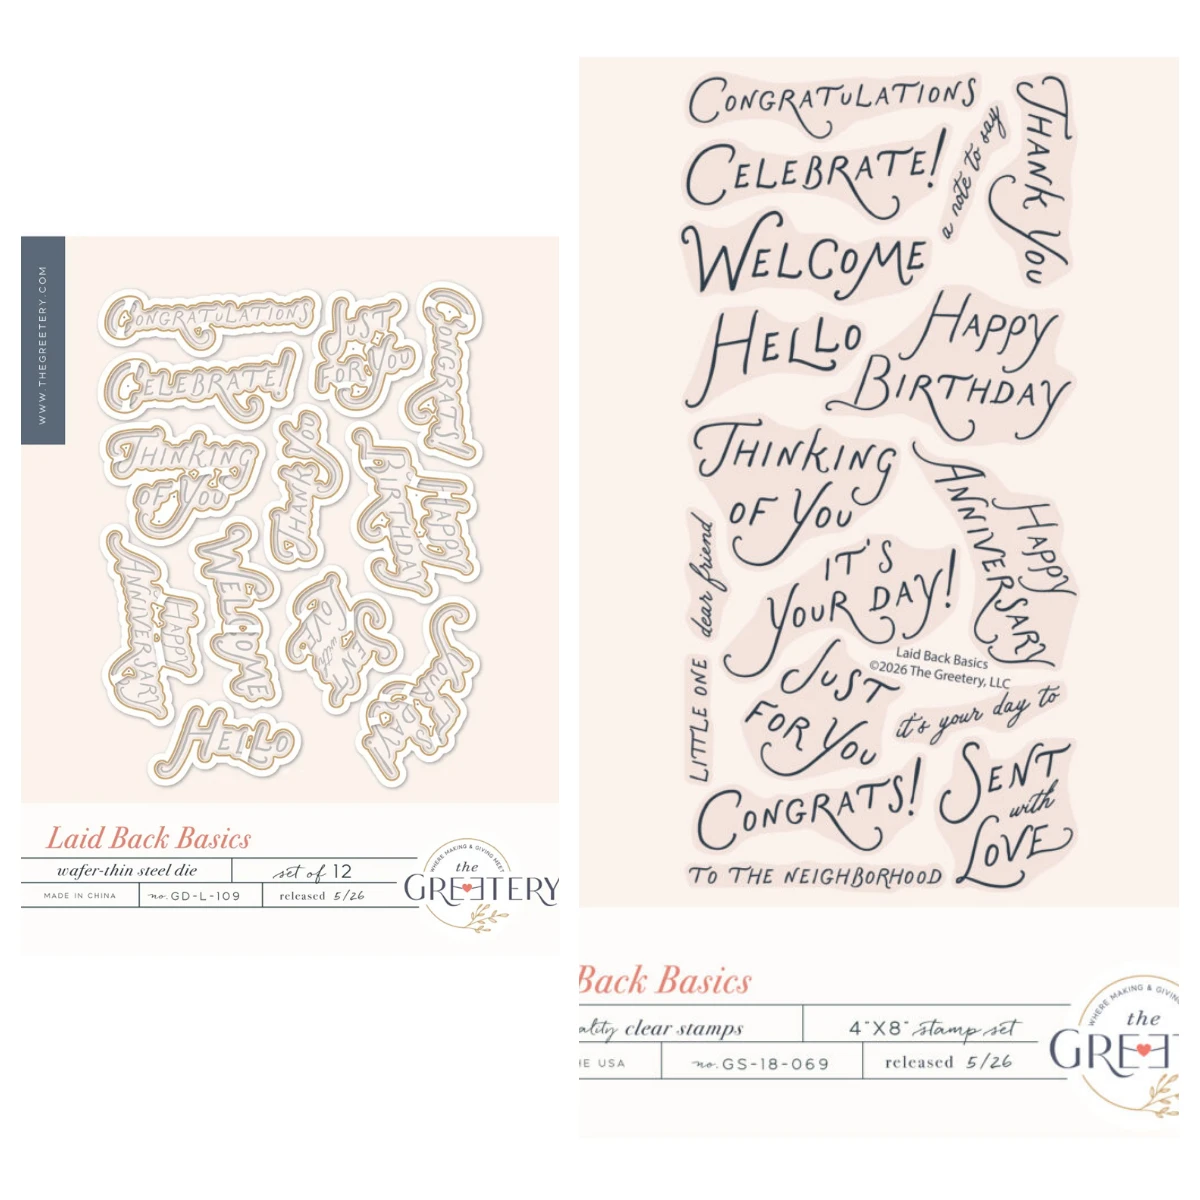 WWW.THEGREETERY.COM
CONGRATULATIONS
JUST
FOR YOU
CONGRATS!
CELEBRATE!
THINKING
OF YOU
THANK YOU
HAPPY
BIRTHDAY
HAPPY
ANNIVERSARY
WELCOME
SENT
with
LOVE
HELLO
Laid Back Basics
wafer-thin steel die
set of 12
MADE IN CHINA
no. GD-L-109
released 5/26
WHERE MAKING & GIVING MEET
the
GREETERY
CONGRATULATIONS
THANK YOU
a note to say
CELEBRATE!
WELCOME
HELLO
HAPPY
BIRTHDAY
THINKING
OF YOU
HAPPY
ANNIVERSARY
dear friend
IT'S
YOUR DAY!
Laid Back Basics
©2026 The Greetery, LLC
LITTLE ONE
JUST
FOR YOU
it's your day to
CONGRATS!
SENT
with
LOVE
TO THE NEIGHBORHOOD
Back Basics
ality clear stamps
4"X8" stamp set
HE USA
no. GS-18-069
released 5/26
WHERE MAKING & GIVING
the
GREET